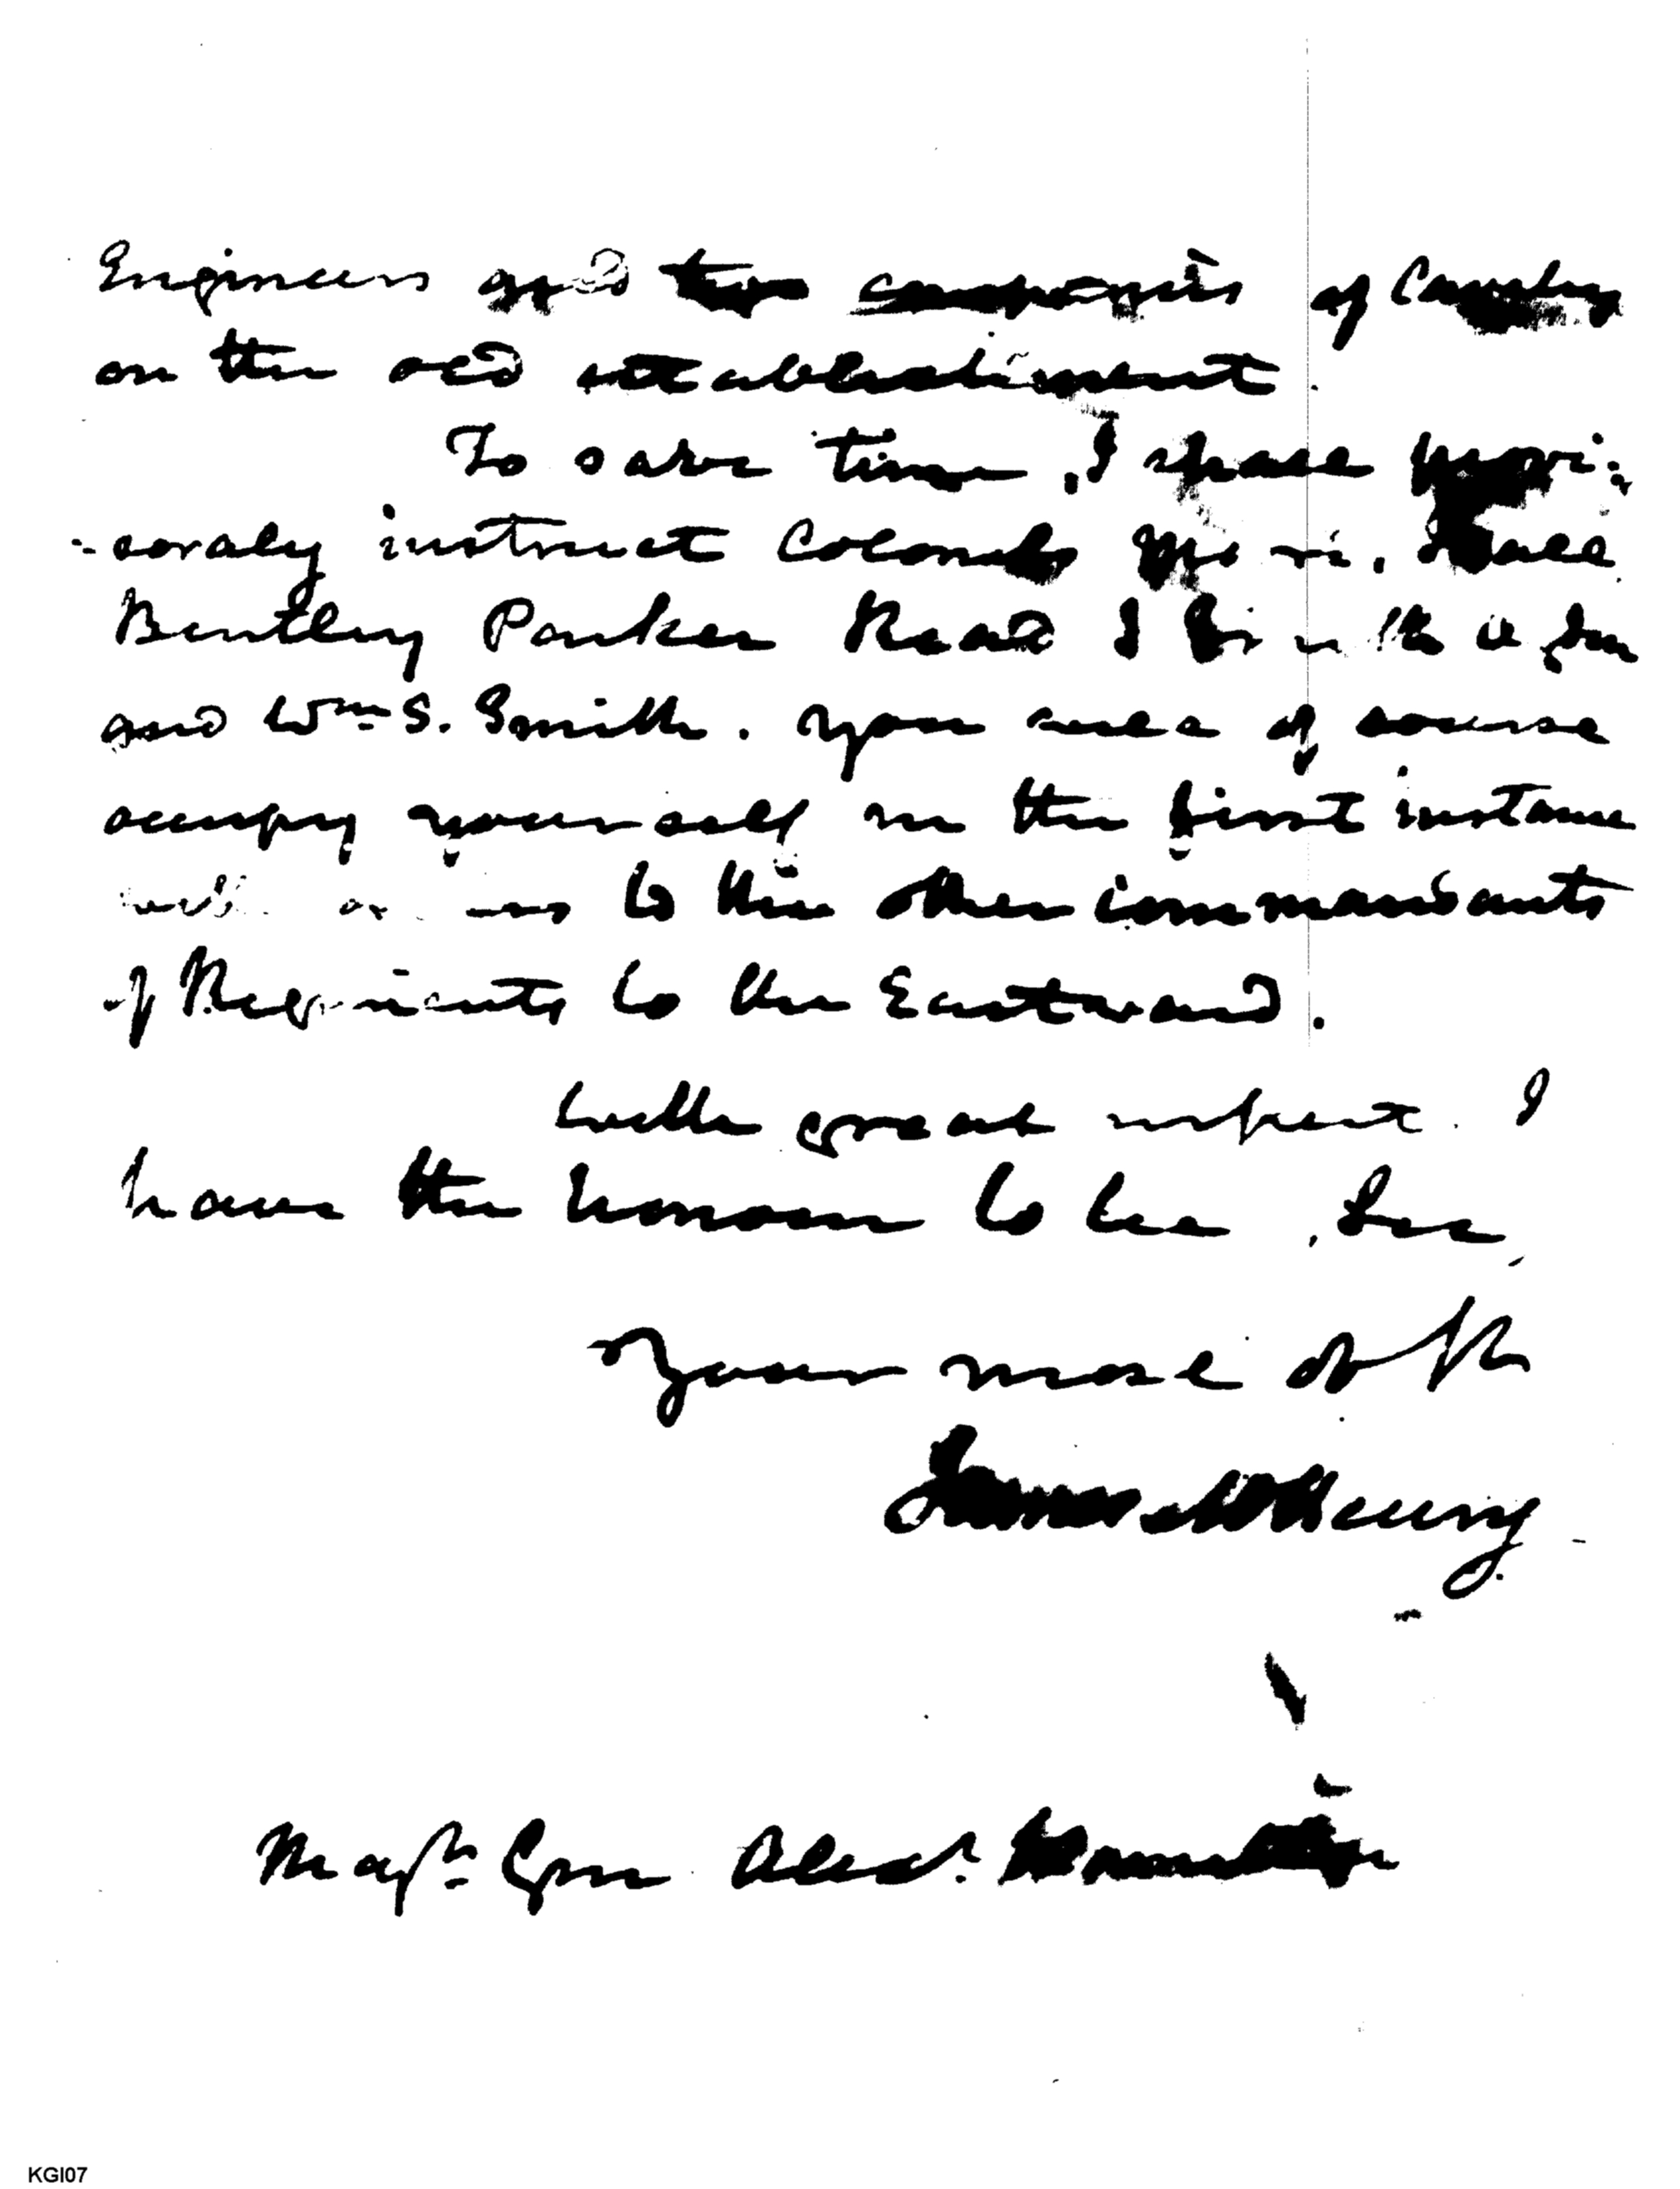 Engineers and two companies of Cavalry
on the old establishment.
To save time, I shall
instruct Colonels
Bentley Parker Read
and Wm S. Smith. You will of course
occupy yourself in the first instance
to the other commandants
of Regiments to the Eastward.
With great respect. I
have the honour to be, Sir,
Your most ob st
James McHenry
Majr Gen Alexr. Hamilton
KGI07